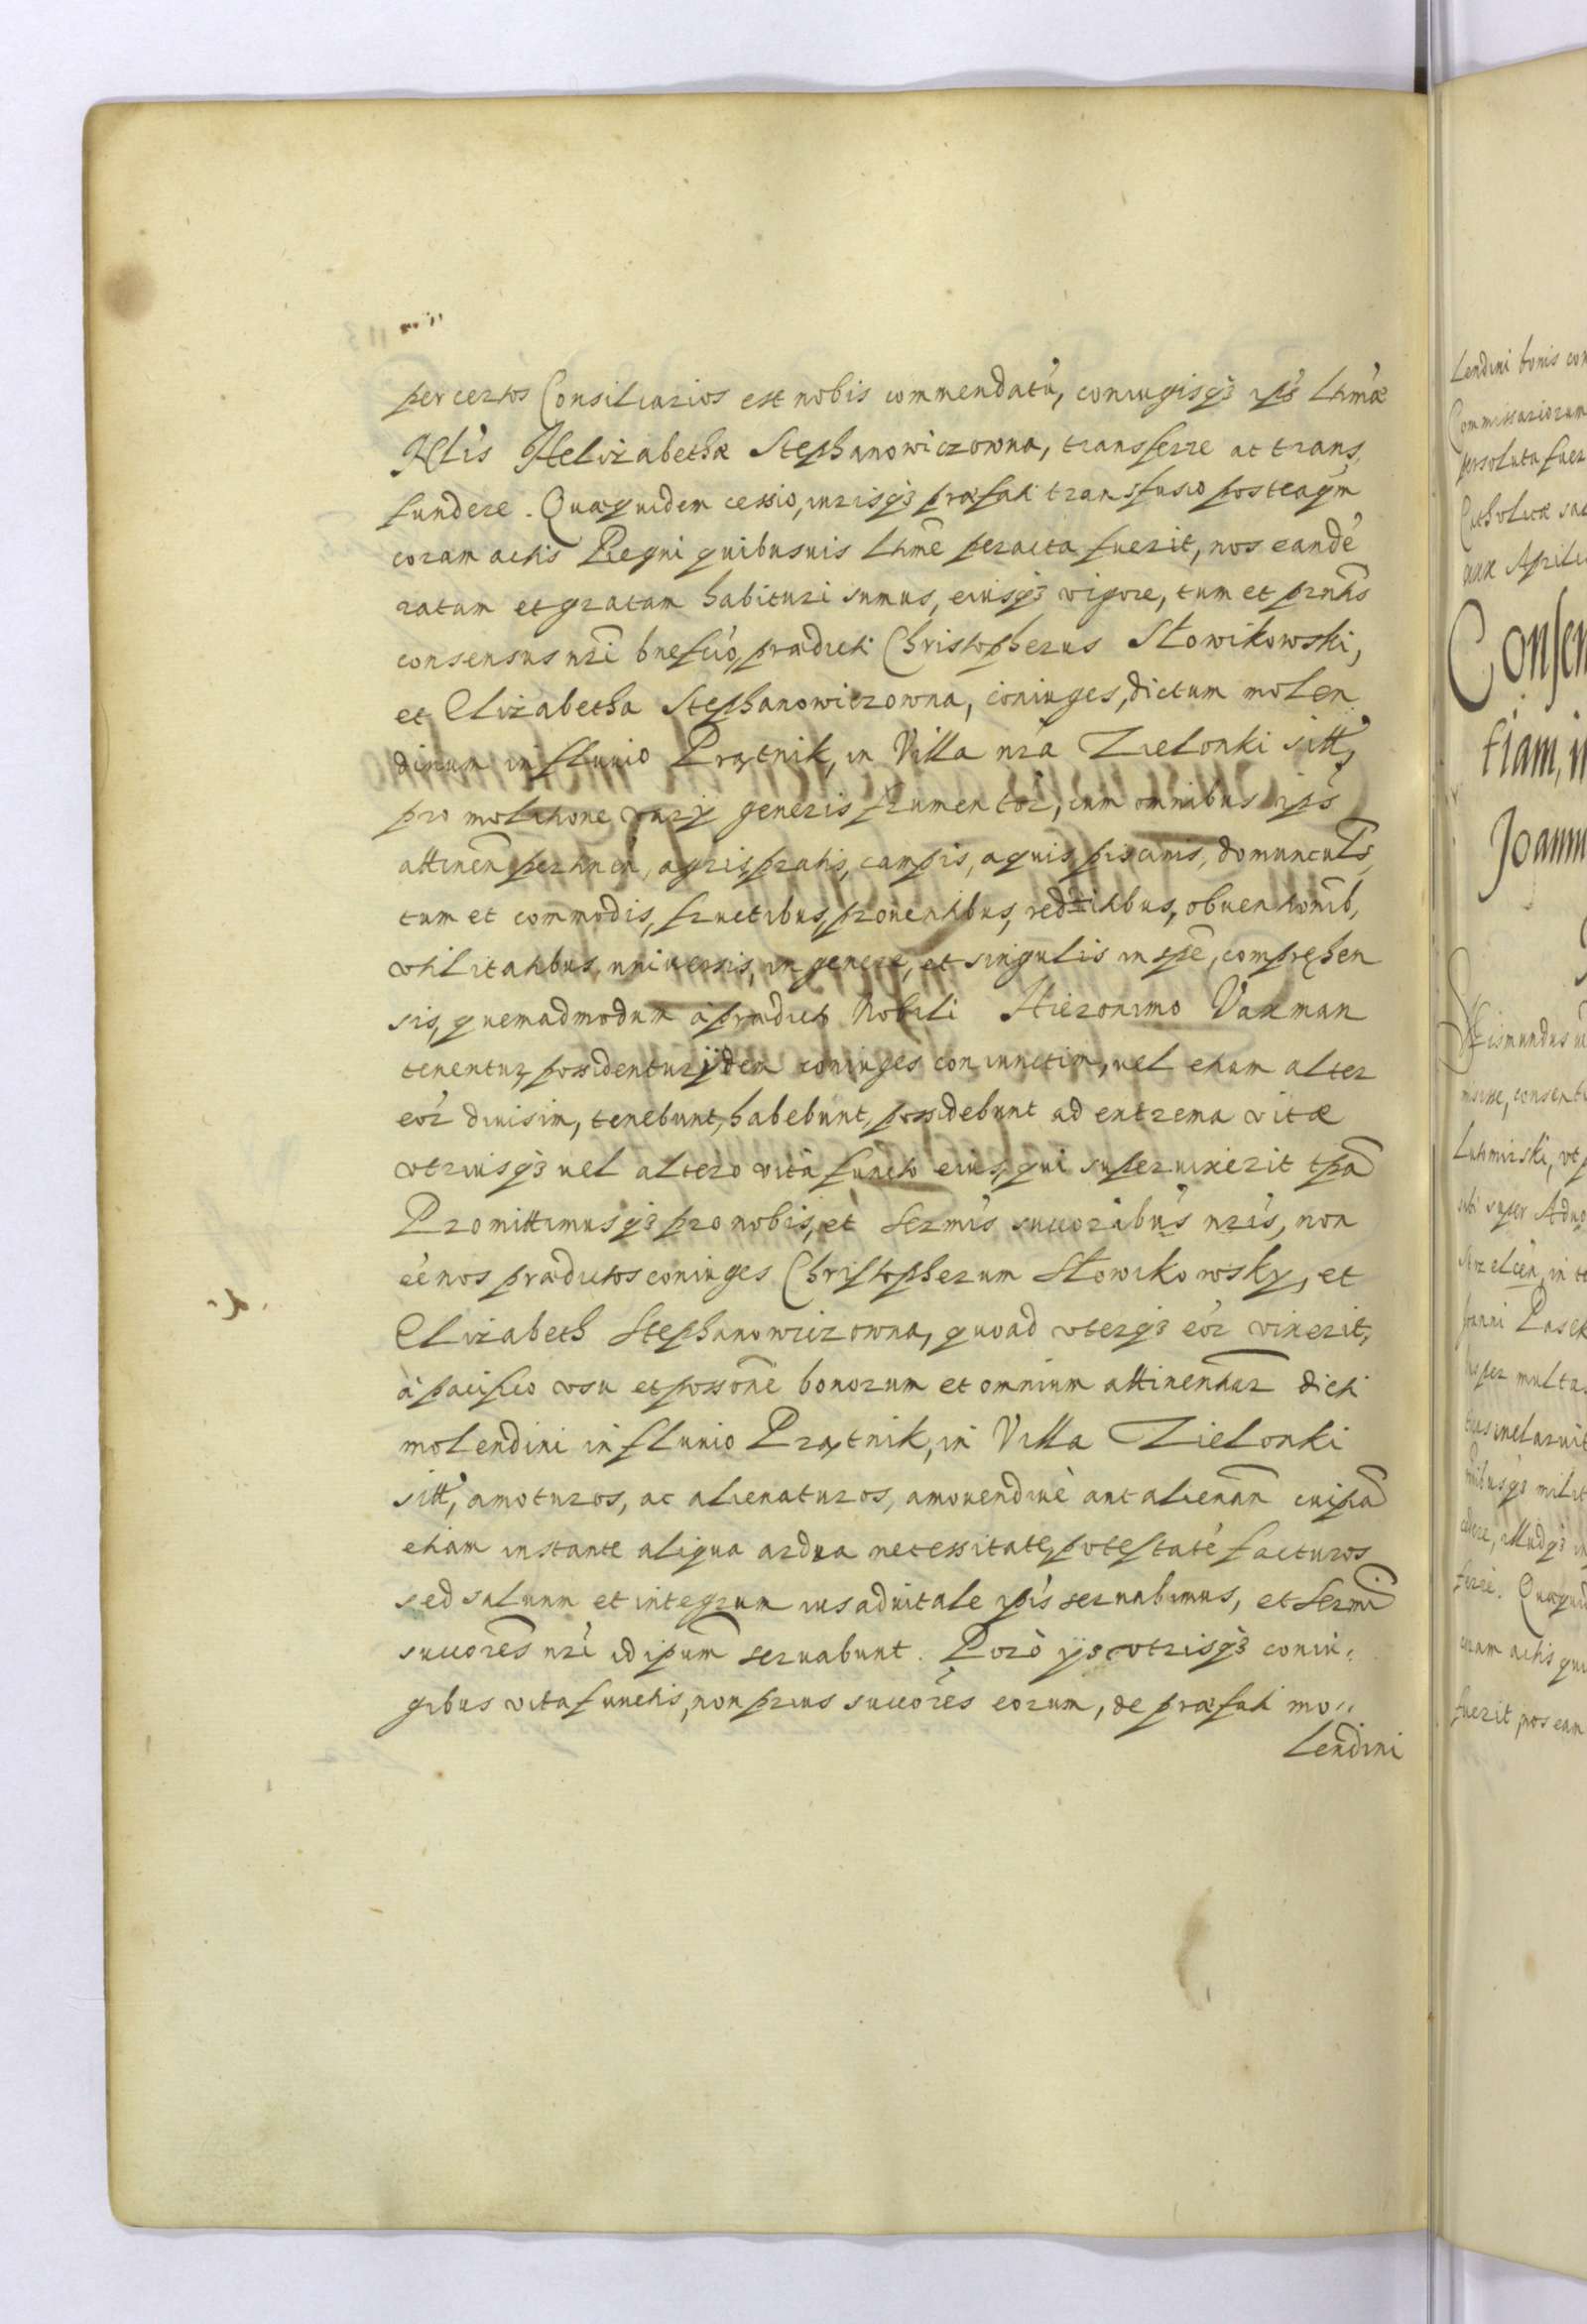 per certos Consiliarios est nobis commendatũ, coniugisq3 ips̃ Lt̃mæ
Nlis Helizabethæ Stephanowiczowna, transferre ac trans,
fundere. Quæquidem cessio, iurisq3 præfati transfusio posteaq̃m
coram actis Regni quibusuis Lt̃me peracta fuerit, nos eandẽ
ratam et gratam habituri sumus, eiusq3 vigore, tum et pr̃ntis
consensus nr̃i bnefc̃io, prædicti Christopherus Słowikowski,
et Elizabetha Stephanowiczowna, coniuges, dictum molen
dinum in fluuio Prątnik, in Villa nr̃a Zielonki sitt,
pro molitione varij generis frumentor̃, cum omnibus ips̃
attinen̄ pertinen̄, agris, pratis, campis, aquis, piscinis, domunculs̃,
tum et commodis, fructibus, prouentibus, redditibus, obuentionib̃,
vtilitatibus, uniuersis, in genere, et singulis in spẽ, compręhen
sis, quemadmodum à prædicto Nobili Hieronimo Vaxman
tenentur, possidentur, ijdem coniuges coniunctim, uel etiam alter
eor̃ diuisim, tenebunt, habebunt, possidebunt ad extrema vitæ
vtriusq3 uel altero vita functo eius, qui superuixerit tp̃a
Promittimusq3 pro nobis, et Sermis̃ succoribus̃ nris̃, non
eẽ nos prædictos coniuges Christopherum Słowikowsky, et
Elizabeth Stephanowiczowna, quoad vterq3 eor̃ vixerit,
à pacifico vsu et posson̄e bonorum et omnium attinentiar̃ dicti
molendini in fluuio Prątnik, in Villa Zielonki
sitt, amoturos, ac alienaturos, amouendiuè aut alienan̄ cuipiã
etiam instante aliqua ardua necessitate, potestatẽ facturos
sed saluum et integrum ius aduitale ipis̃ seruabimus, et Sermĩ
succores̃ nrĩ id ipsum̃ seruabunt. Porò ijs vtrisq3 coniu⸗
gibus vita functis, non prius succores̃ eorum, de præfati mo⸗
lendini
Lendini bonis con
Commissariorum
persoluta fuer
Catholicæ sac
Consen
tiam, i
Joann
Lutomirski, vt p
Joanni Pasek
per multas
ferre. Quæquid
coram actis qui
fuerit, nos ean